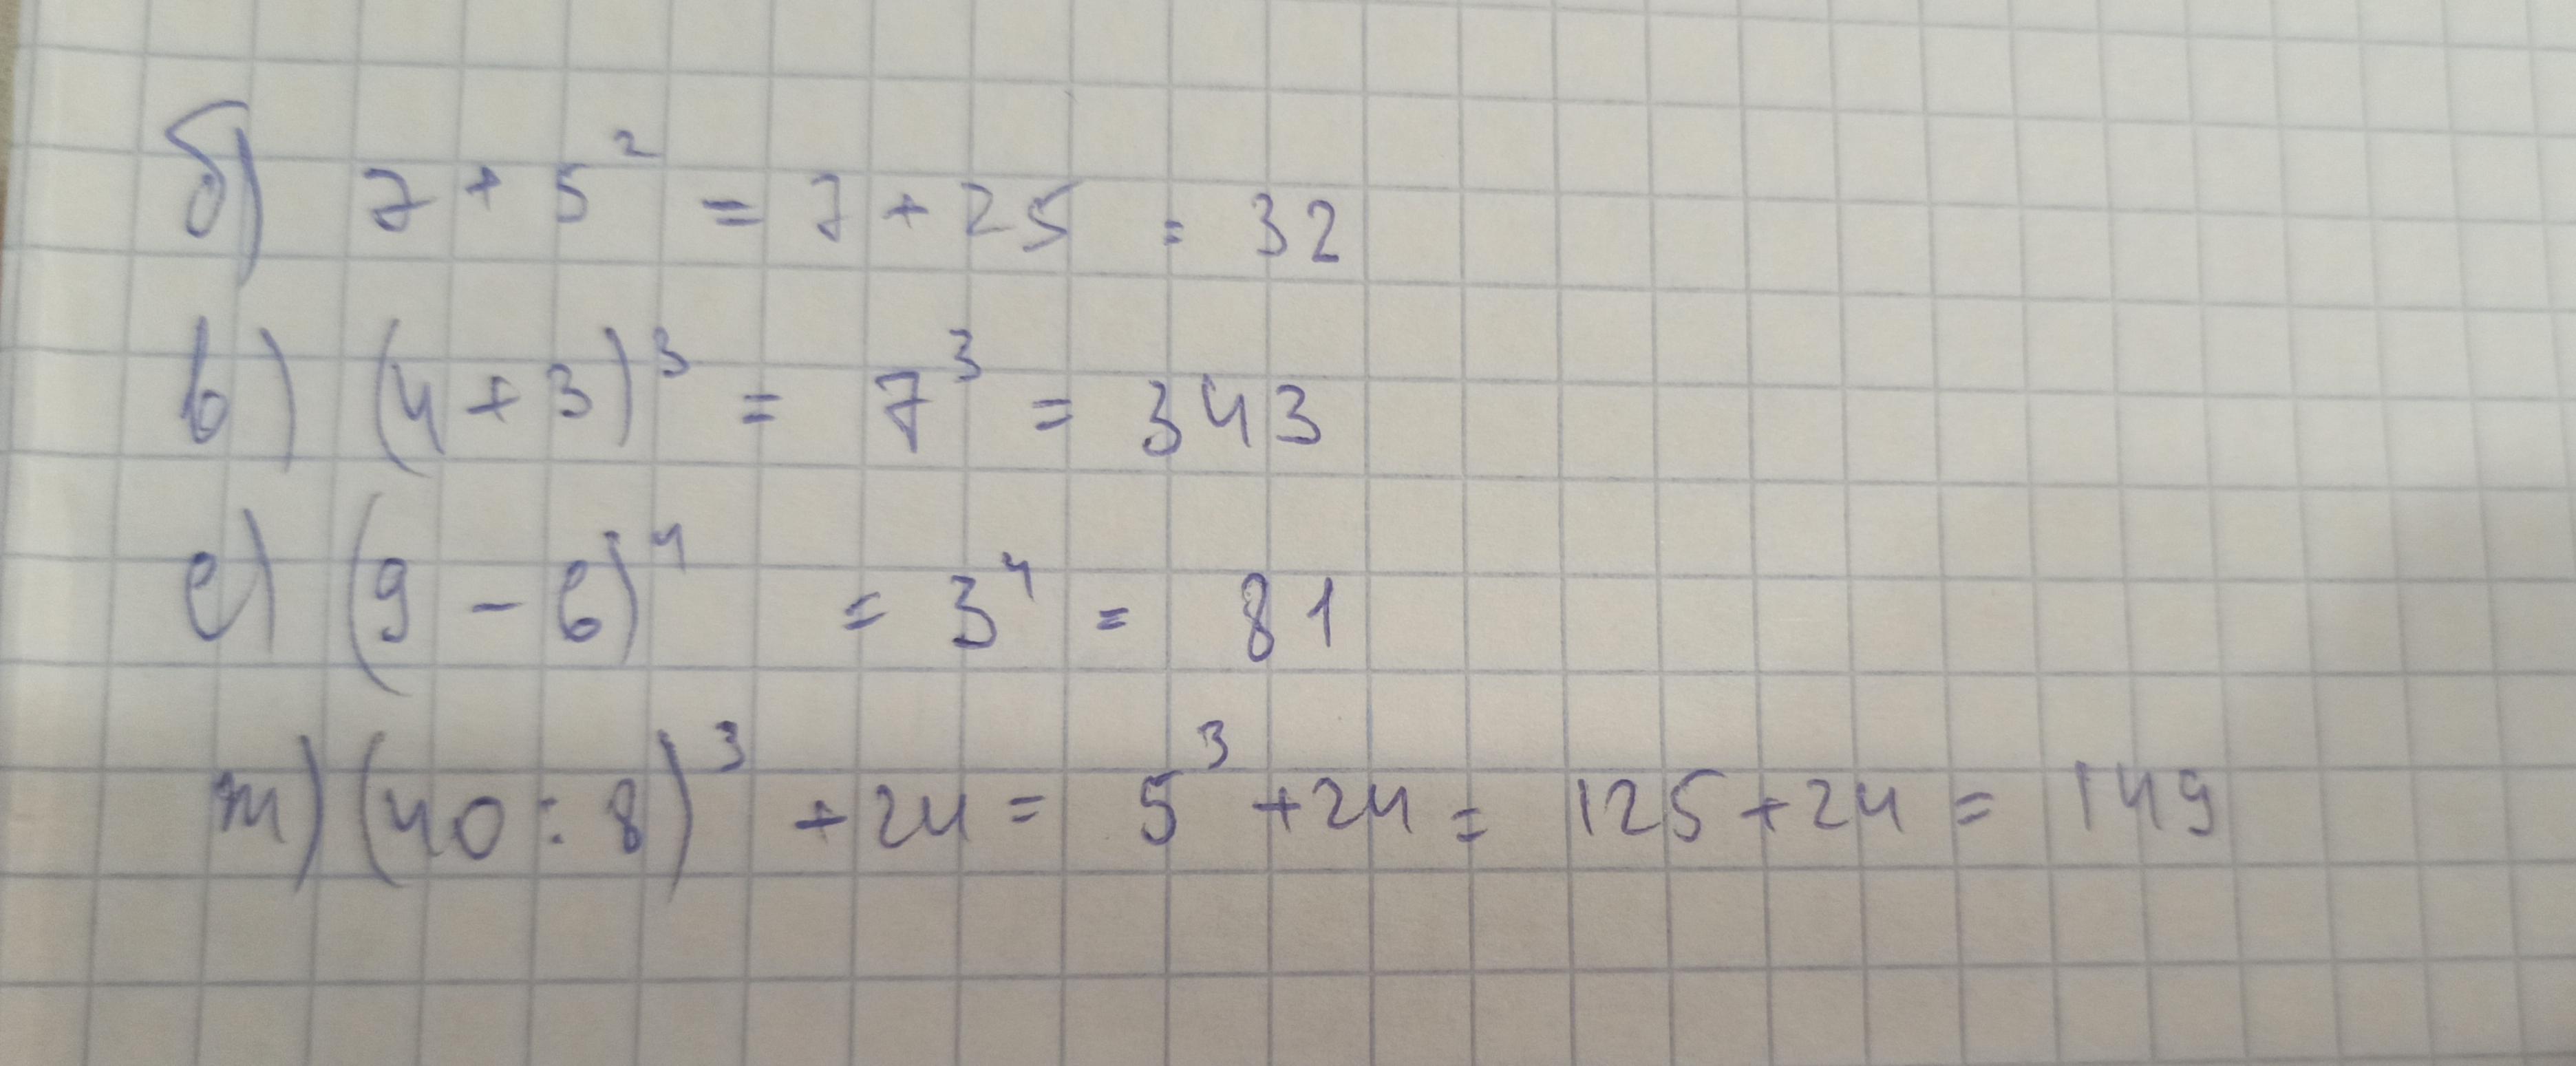 б) 7 + 5² = 7 + 25 = 32
в) (4 + 3)³ = 7³ = 343
е) (9 - 6)⁴ = 3⁴ = 81
т) (40 : 8)³ + 24 = 5³ + 24 = 125 + 24 = 149